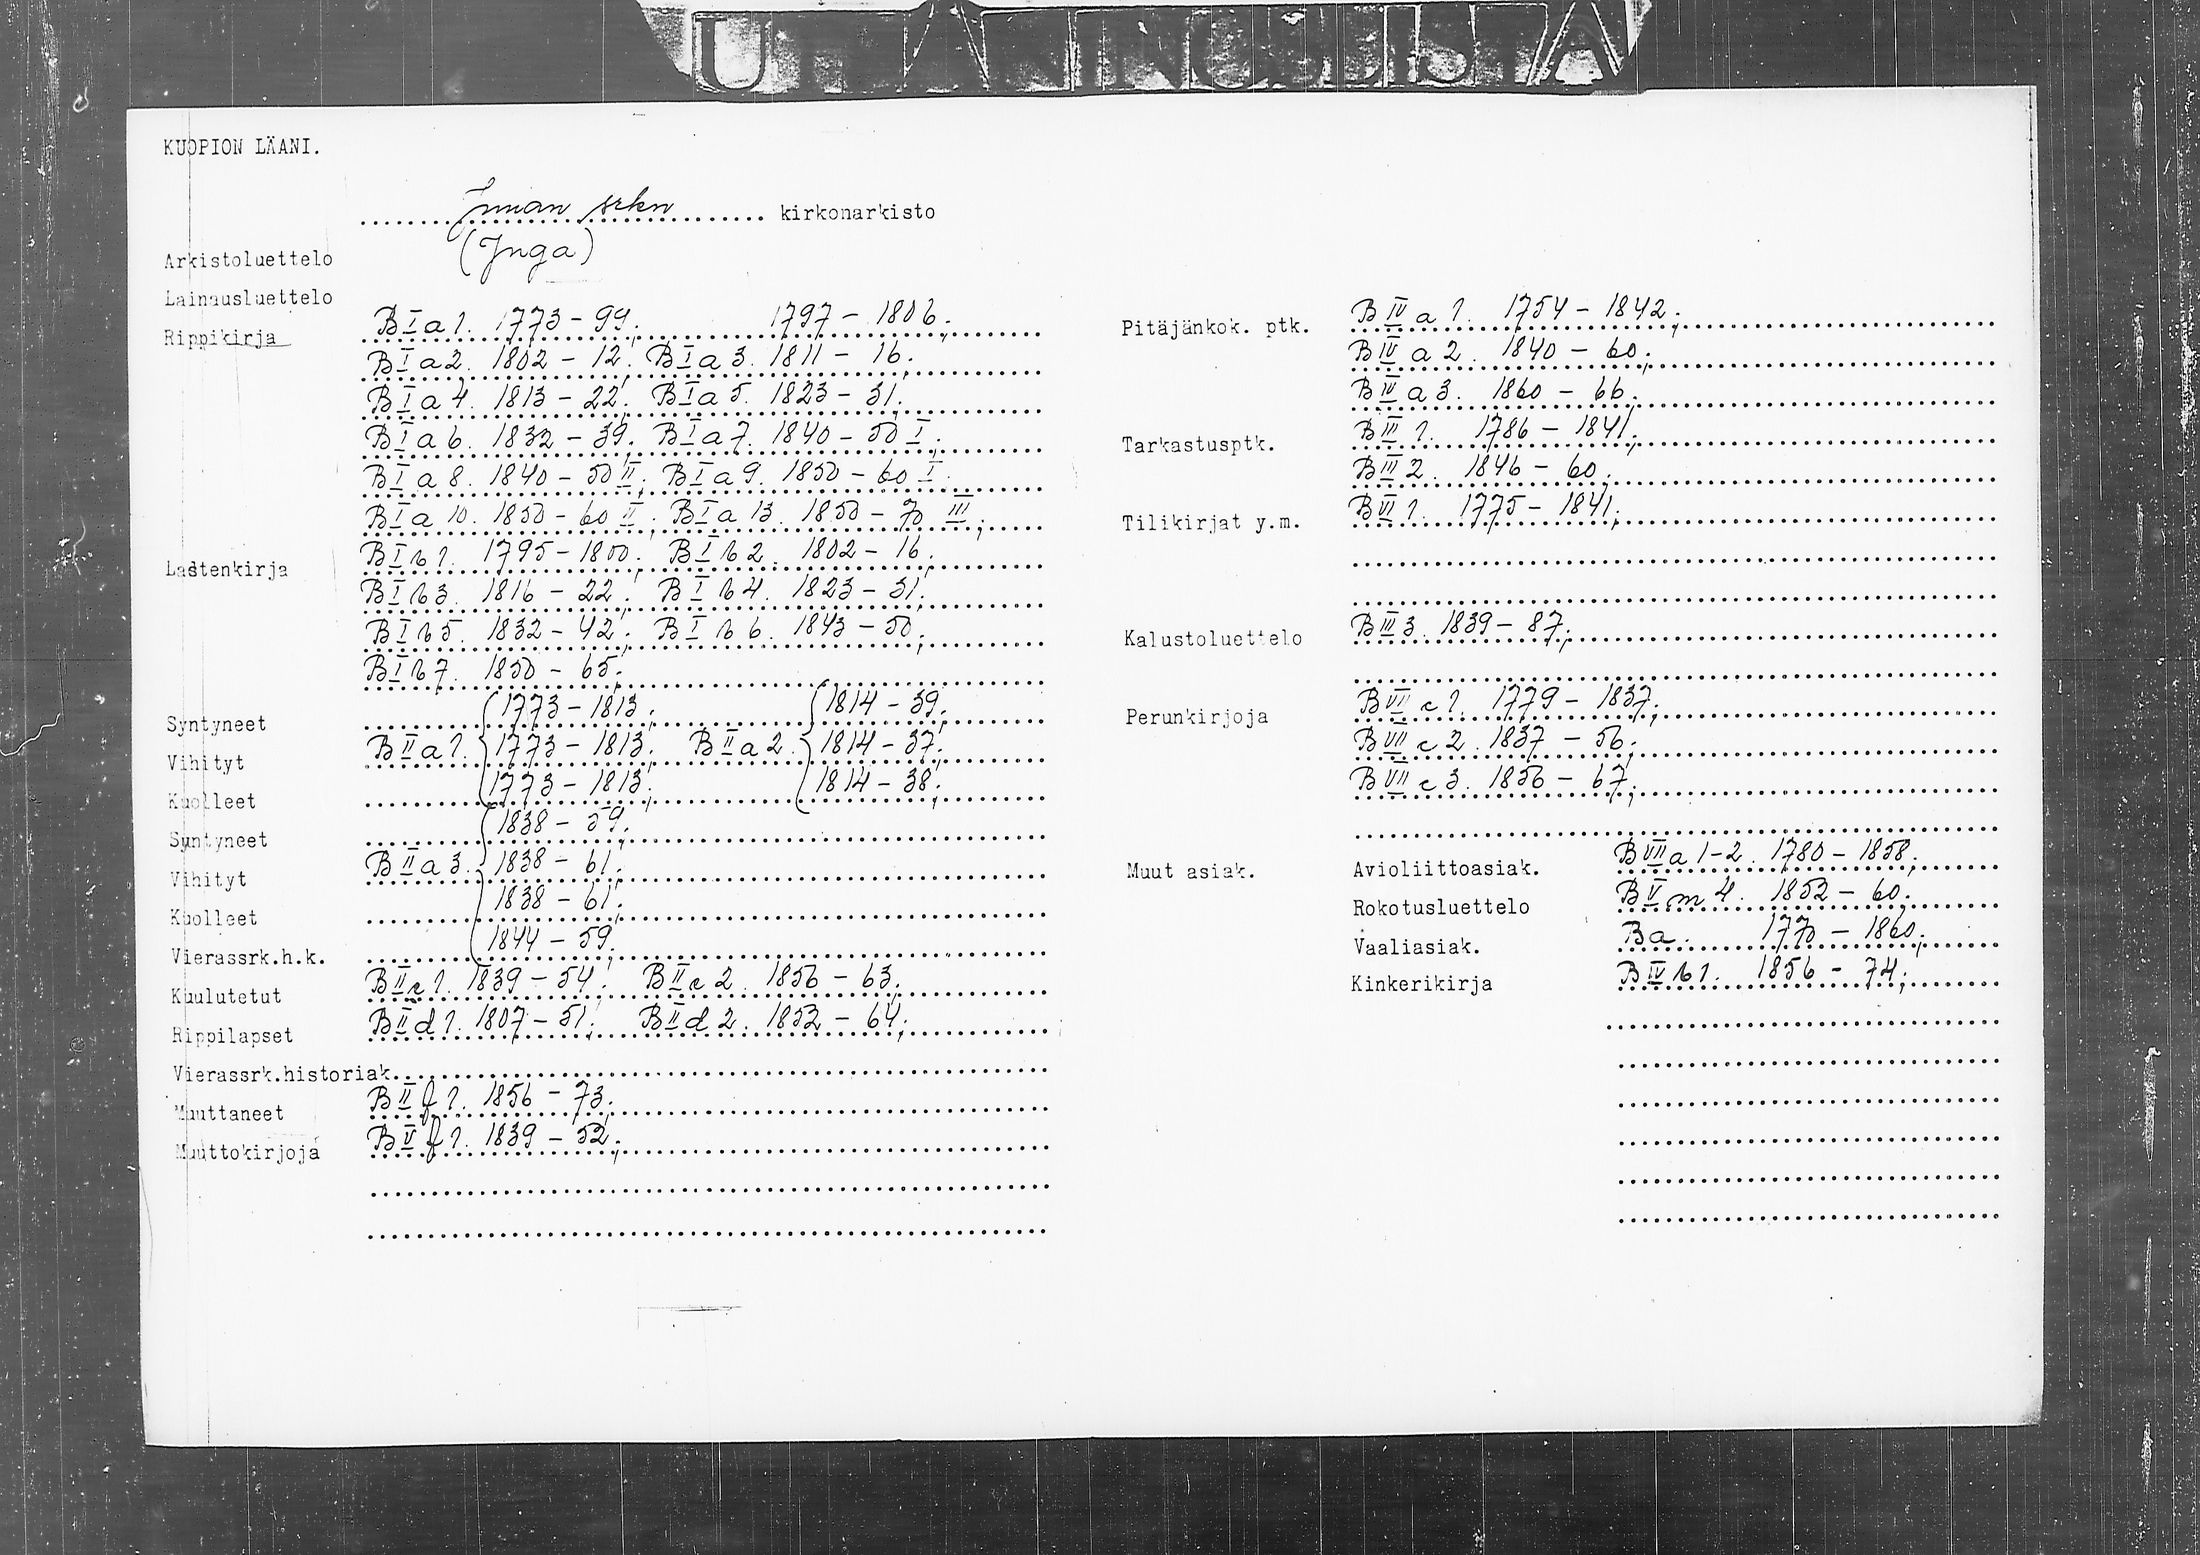 KUOPION LÄANI.
Juuan srkn kirkonarkisto
(Juga)
Arkistoluettelo
Lainausluettelo
Rippikirja B I a 1. 1773-99. 1797-1806.
B I a 2. 1802-12. B I a 3. 1811-16.
B I a 4. 1813-22. B I a 5. 1823-31.
B I a 6. 1832-39. B I a 7. 1840-50 I.
B I a 8. 1840-50 II. B I a 9. 1850-60 I.
B I a 10. 1850-60 II. B I a 13. 1850-70 III.
Lastenkirja B I b 1. 1795-1800. B I b 2. 1802-16.
B I b 3. 1816-22. B I b 4. 1823-31.
B I b 5. 1832-42. B I b 6. 1843-50.
B I b 7. 1850-65.
Syntyneet 1773-1813. 1814-39.
Vihityt B II a 1. 1773-1813. B II a 2. 1814-37.
Kuolleet 1773-1813. 1814-38.
Syntyneet 1838-59.
Vihityt B II a 3. 1838-61.
Kuolleet 1838-61.
Vierassrk.h.k. 1844-59.
Kuulutetut B II c 1. 1839-54. B II c 2. 1856-63.
Rippilapset B II d 1. 1807-51. B II d 2. 1852-64.
Vierassrk.historiak.
Muuttaneet B II f 1. 1856-73.
Muuttokirjoja B V f 1. 1839-52.
Pitäjänkok. ptk. B IV a 1. 1754-1842.
B IV a 2. 1840-60.
B IV a 3. 1860-66.
Tarkastusptk. B III 1. 1786-1841.
B III 2. 1846-60.
Tilikirjat y.m. B VI 1. 1775-1841.
Kalustoluettelo B III 3. 1839-87.
Perunkirjoja B VII c 1. 1779-1837.
B VII c 2. 1837-56.
B VII c 3. 1856-67.
Muut asiak. Avioliittoasiak. B VII a 1-2. 1780-1858.
Rokotusluettelo B V m 4. 1852-60.
Vaaliasiak. Ba. 1770-1860.
Kinkerikirja B IV b 1. 1856-74.